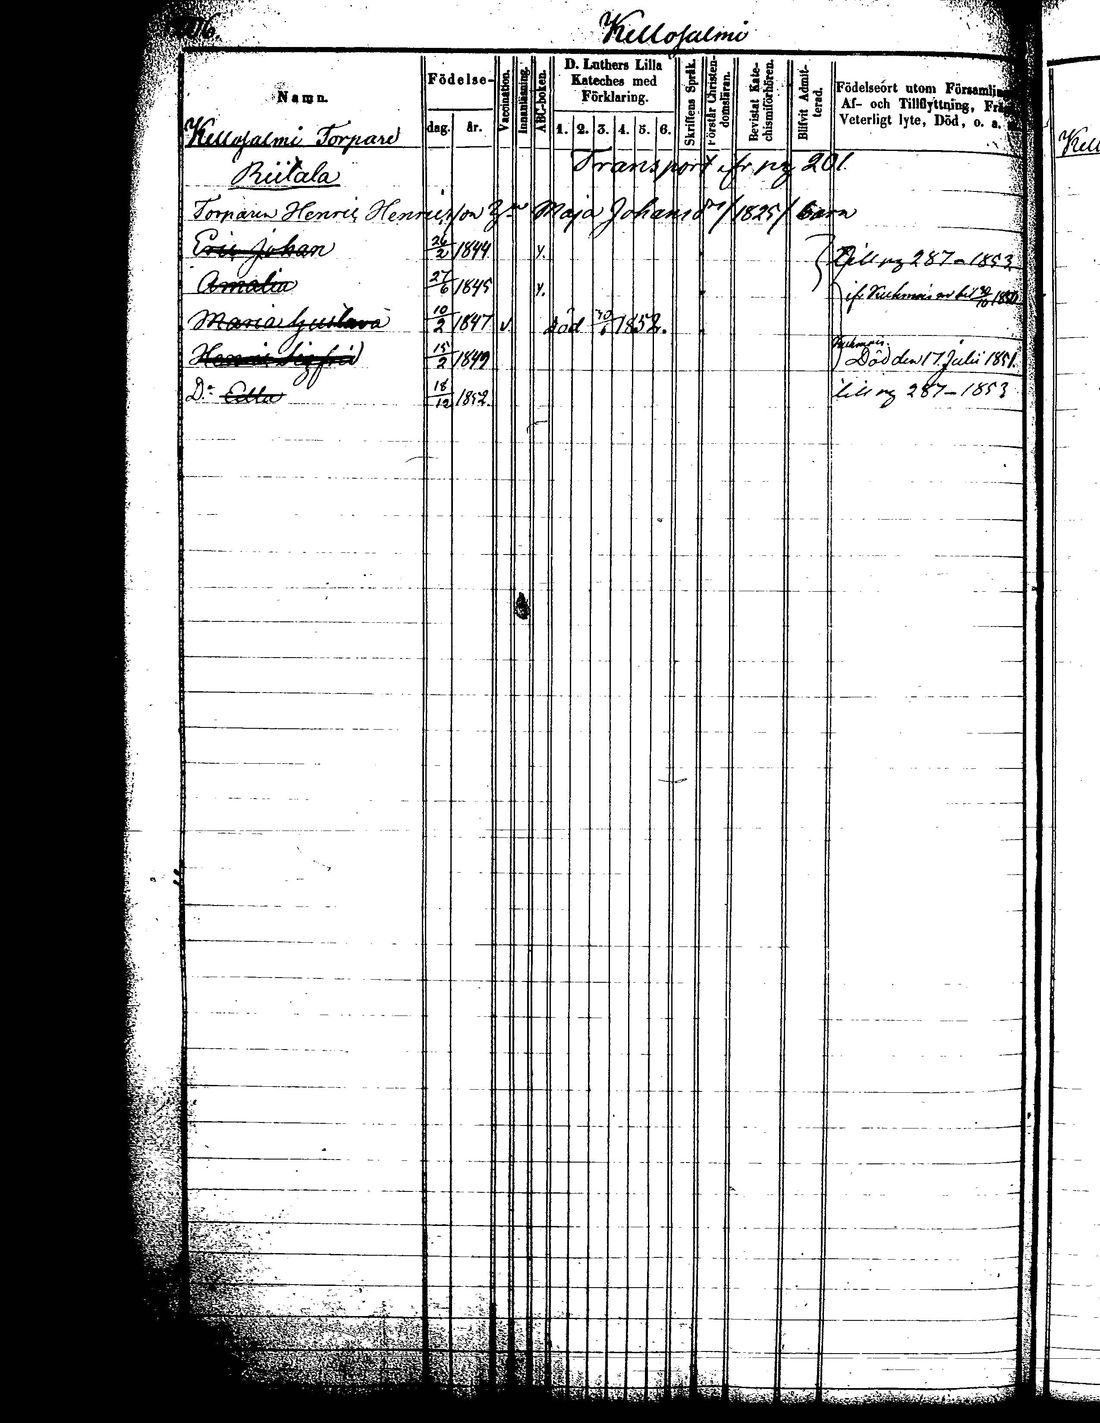 Kellosalmi
Namn.
Födelse-
dag.
år.
Vaccination.
Innanläsning.
ABC-boken.
D. Luthers Lilla
Kateches med
Förklaring.
1. 2. 3. 4. 5. 6.
Skriftens Språk.
Förstår Christen-
domsläran.
Bevistat Kate-
chismiförhören.
Blifvit Admit-
terad.
Födelseort utom Församlin
Af- och Tillflyttning, Frå
Veterligt lyte, Död, o. a.
Kellosalmi Torpare
Riitala
Transport fr pg 201.
Torparen Henric Henricsson Maja Johans dr /1825/ barn
Eric Johan 26/2 1844 till pg 287 - 1853
Amalia 27/6 1845
Maria Gustava 10/2 1847 v. död 1852.
Henric Sigfrid 15/2 1849 Död den 17 Juli 1851.
Dr Edla 18/12 1852. till pg 287 - 1853
Kell